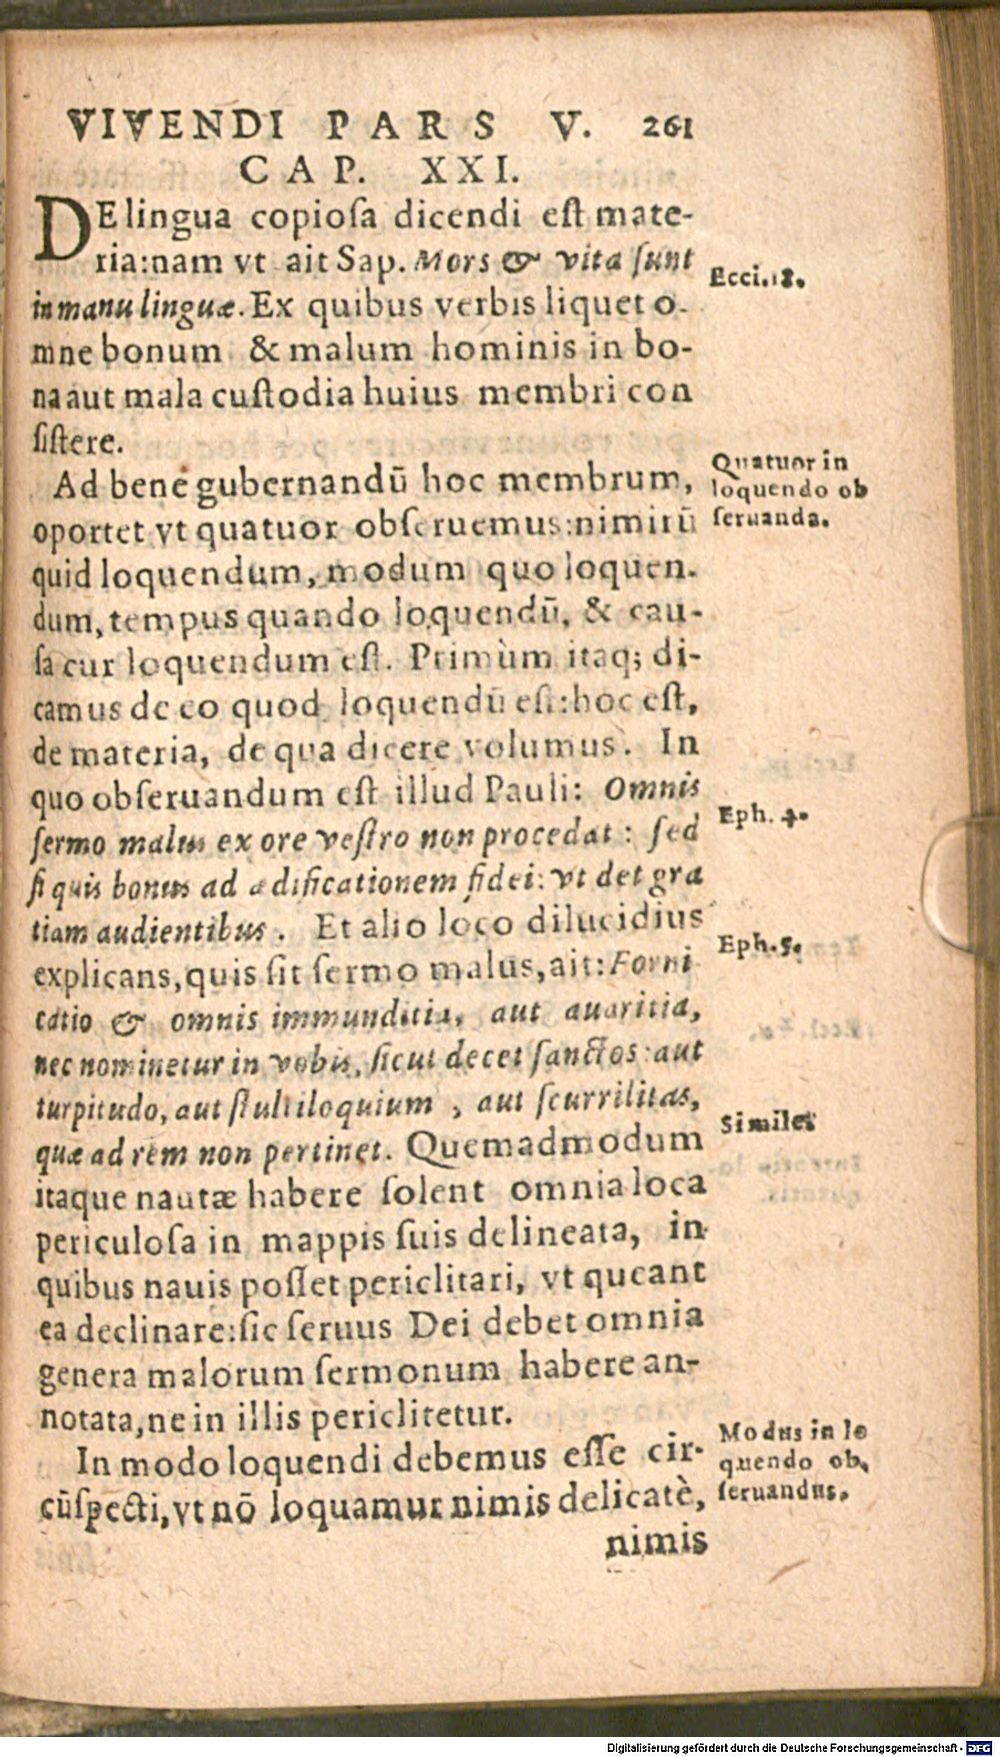 VIVENDI PARS V. 261
CAP. XXI.
DE lingua copioſa dicendi eſt mate-
ria: nam vt ait Sap. Mors & vita ſunt
in manu linguæ. Ex quibus verbis liquet o-
mne bonum & malum hominis in bo-
na aut mala cuſtodia huius membri con
ſiſtere.
Eccl. 18.
Ad bene gubernandū hoc membrum,
oportet vt quatuor obſeruemus: nimirū
quid loquendum, modum quo loquen-
dum, tempus quando loquendū, & cau-
ſa cur loquendum eſt. Primùm itaq; di-
camus de eo quod loquendū eſt: hoc eſt,
de materia, de qua dicere volumus. In
quo obſeruandum eſt illud Pauli: Omnis
ſermo malus ex ore veſtro non procedat: ſed
ſi quis bonus ad ædificationem fidei: vt det gra
tiam audientibus. Et alio loco dilucidius
explicans, quis ſit ſermo malus, ait: Forni
catio & omnis immunditia, aut auaritia,
nec nominetur in vobis, ſicut decet ſanctos: aut
turpitudo, aut ſtultiloquium, aut ſcurrilitas,
quæ ad rem non pertinet. Quemadmodum
itaque nautæ habere ſolent omnia loca
periculoſa in mappis ſuis delineata, in
quibus nauis poſſet periclitari, vt queant
ea declinare: ſic ſeruus Dei debet omnia
genera malorum ſermonum habere an-
notata, ne in illis periclitetur.
Quatuor in
loquendo ob
ſeruanda.
Eph. 4.
Eph. 5.
Simile
In modo loquendi debemus eſſe cir-
cūſpecti, vt nō loquamur nimis delicatè,
Modus in lo
quendo ob,
ſeruandus.
nimis
Digitalisierung gefördert durch die Deutsche Forschungsgemeinschaft - DFG